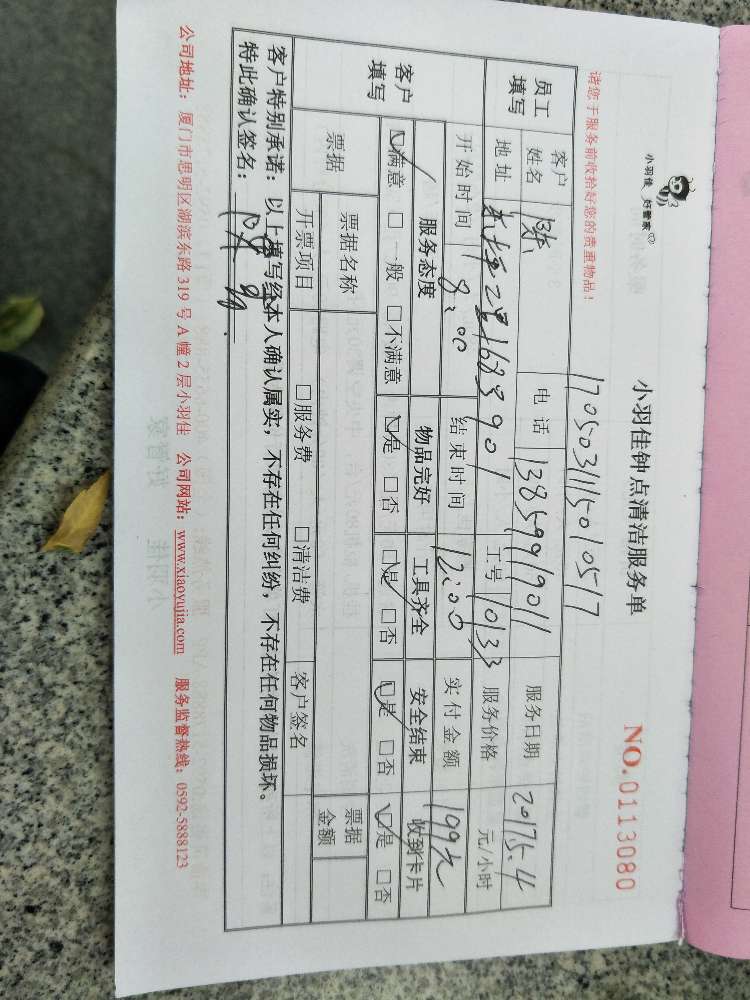 小羽佳 好管家
小羽佳钟点清洁服务单
NO.0113080
请您于服务前收拾好您的贵重物品！
1705031115010517
员工填写
客户姓名 陈 电话 13859919011 服务日期 2017.5.4
地址 2号168号901 工号 10133 服务价格 元/小时
开始时间 8:00 结束时间 12:00 实付金额 199元
客户填写
服务态度 物品完好 工具齐全 安全结束 收到卡片
☑满意 □一般 □不满意 ☑是 □否 ☑是 □否 ☑是 □否 ☑是 □否
票据 票据名称 客户签名 票据金额
开票项目 □服务费 □清洁费
客户特别承诺：以上填写经本人确认属实，不存在任何纠纷，不存在任何物品损坏。
特此确认签名：陈
公司地址：厦门市思明区湖滨东路 319 号 A 幢 2 层小羽佳 公司网站：www.xiaoyujia.com 服务监督热线：0592-5888123